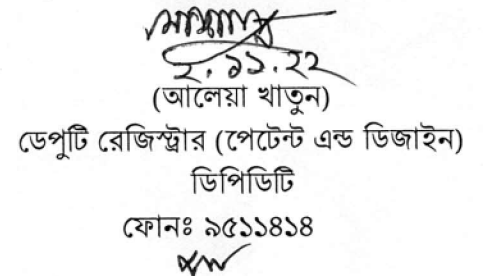 ২.১১.২২
(আলেয়া খাতুন)
ডেপুটি রেজিস্ট্রার (পেটেন্ট এন্ড ডিজাইন)
ডিপিডিটি
ফোনঃ ৯৫১১৪১৪